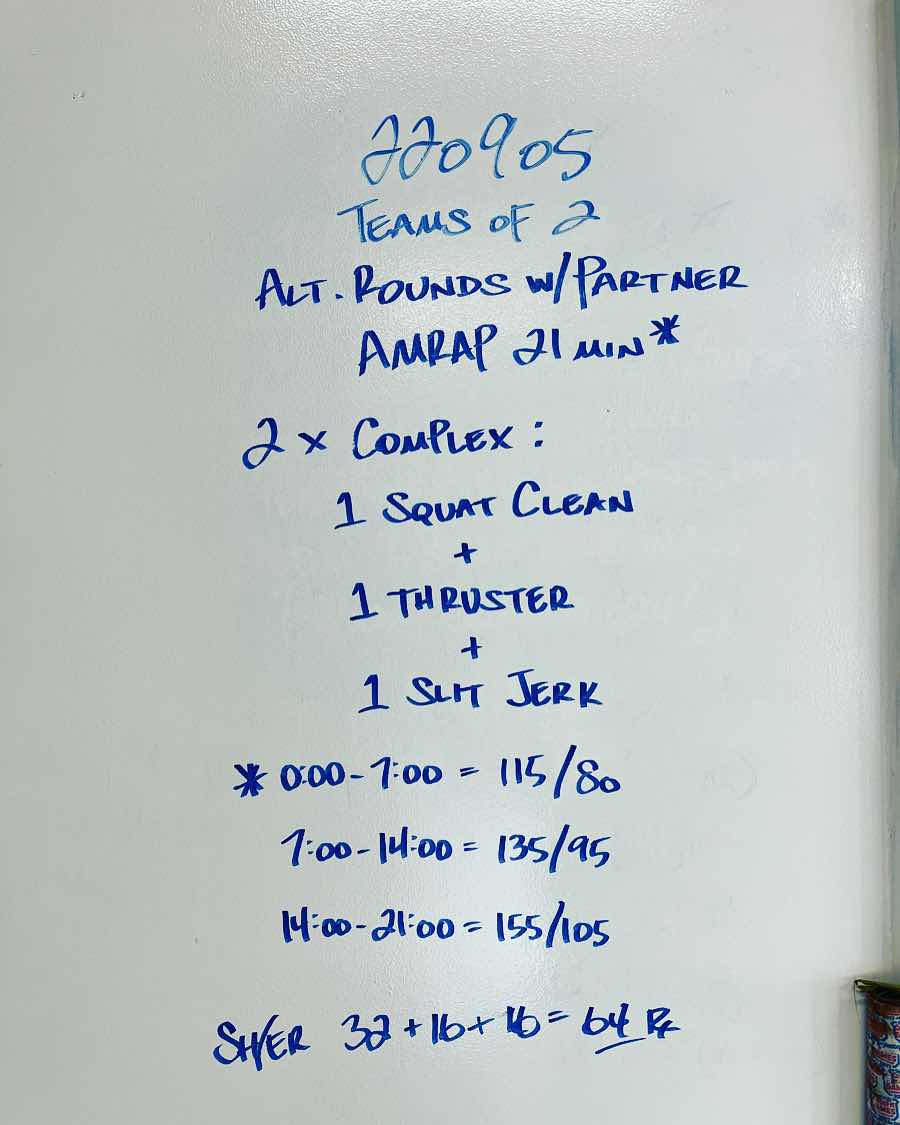 220905
TEAMS OF 2
ALT. ROUNDS W/PARTNER
AMRAP 21 MIN*
2 x COMPLEX:
1 SQUAT CLEAN
+
1 THRUSTER
+
1 SLIT JERK
* 0:00-7:00 = 115/80
7:00-14:00 = 135/95
14:00-21:00 = 155/105
SH/ER 32+16+16=64 Rx